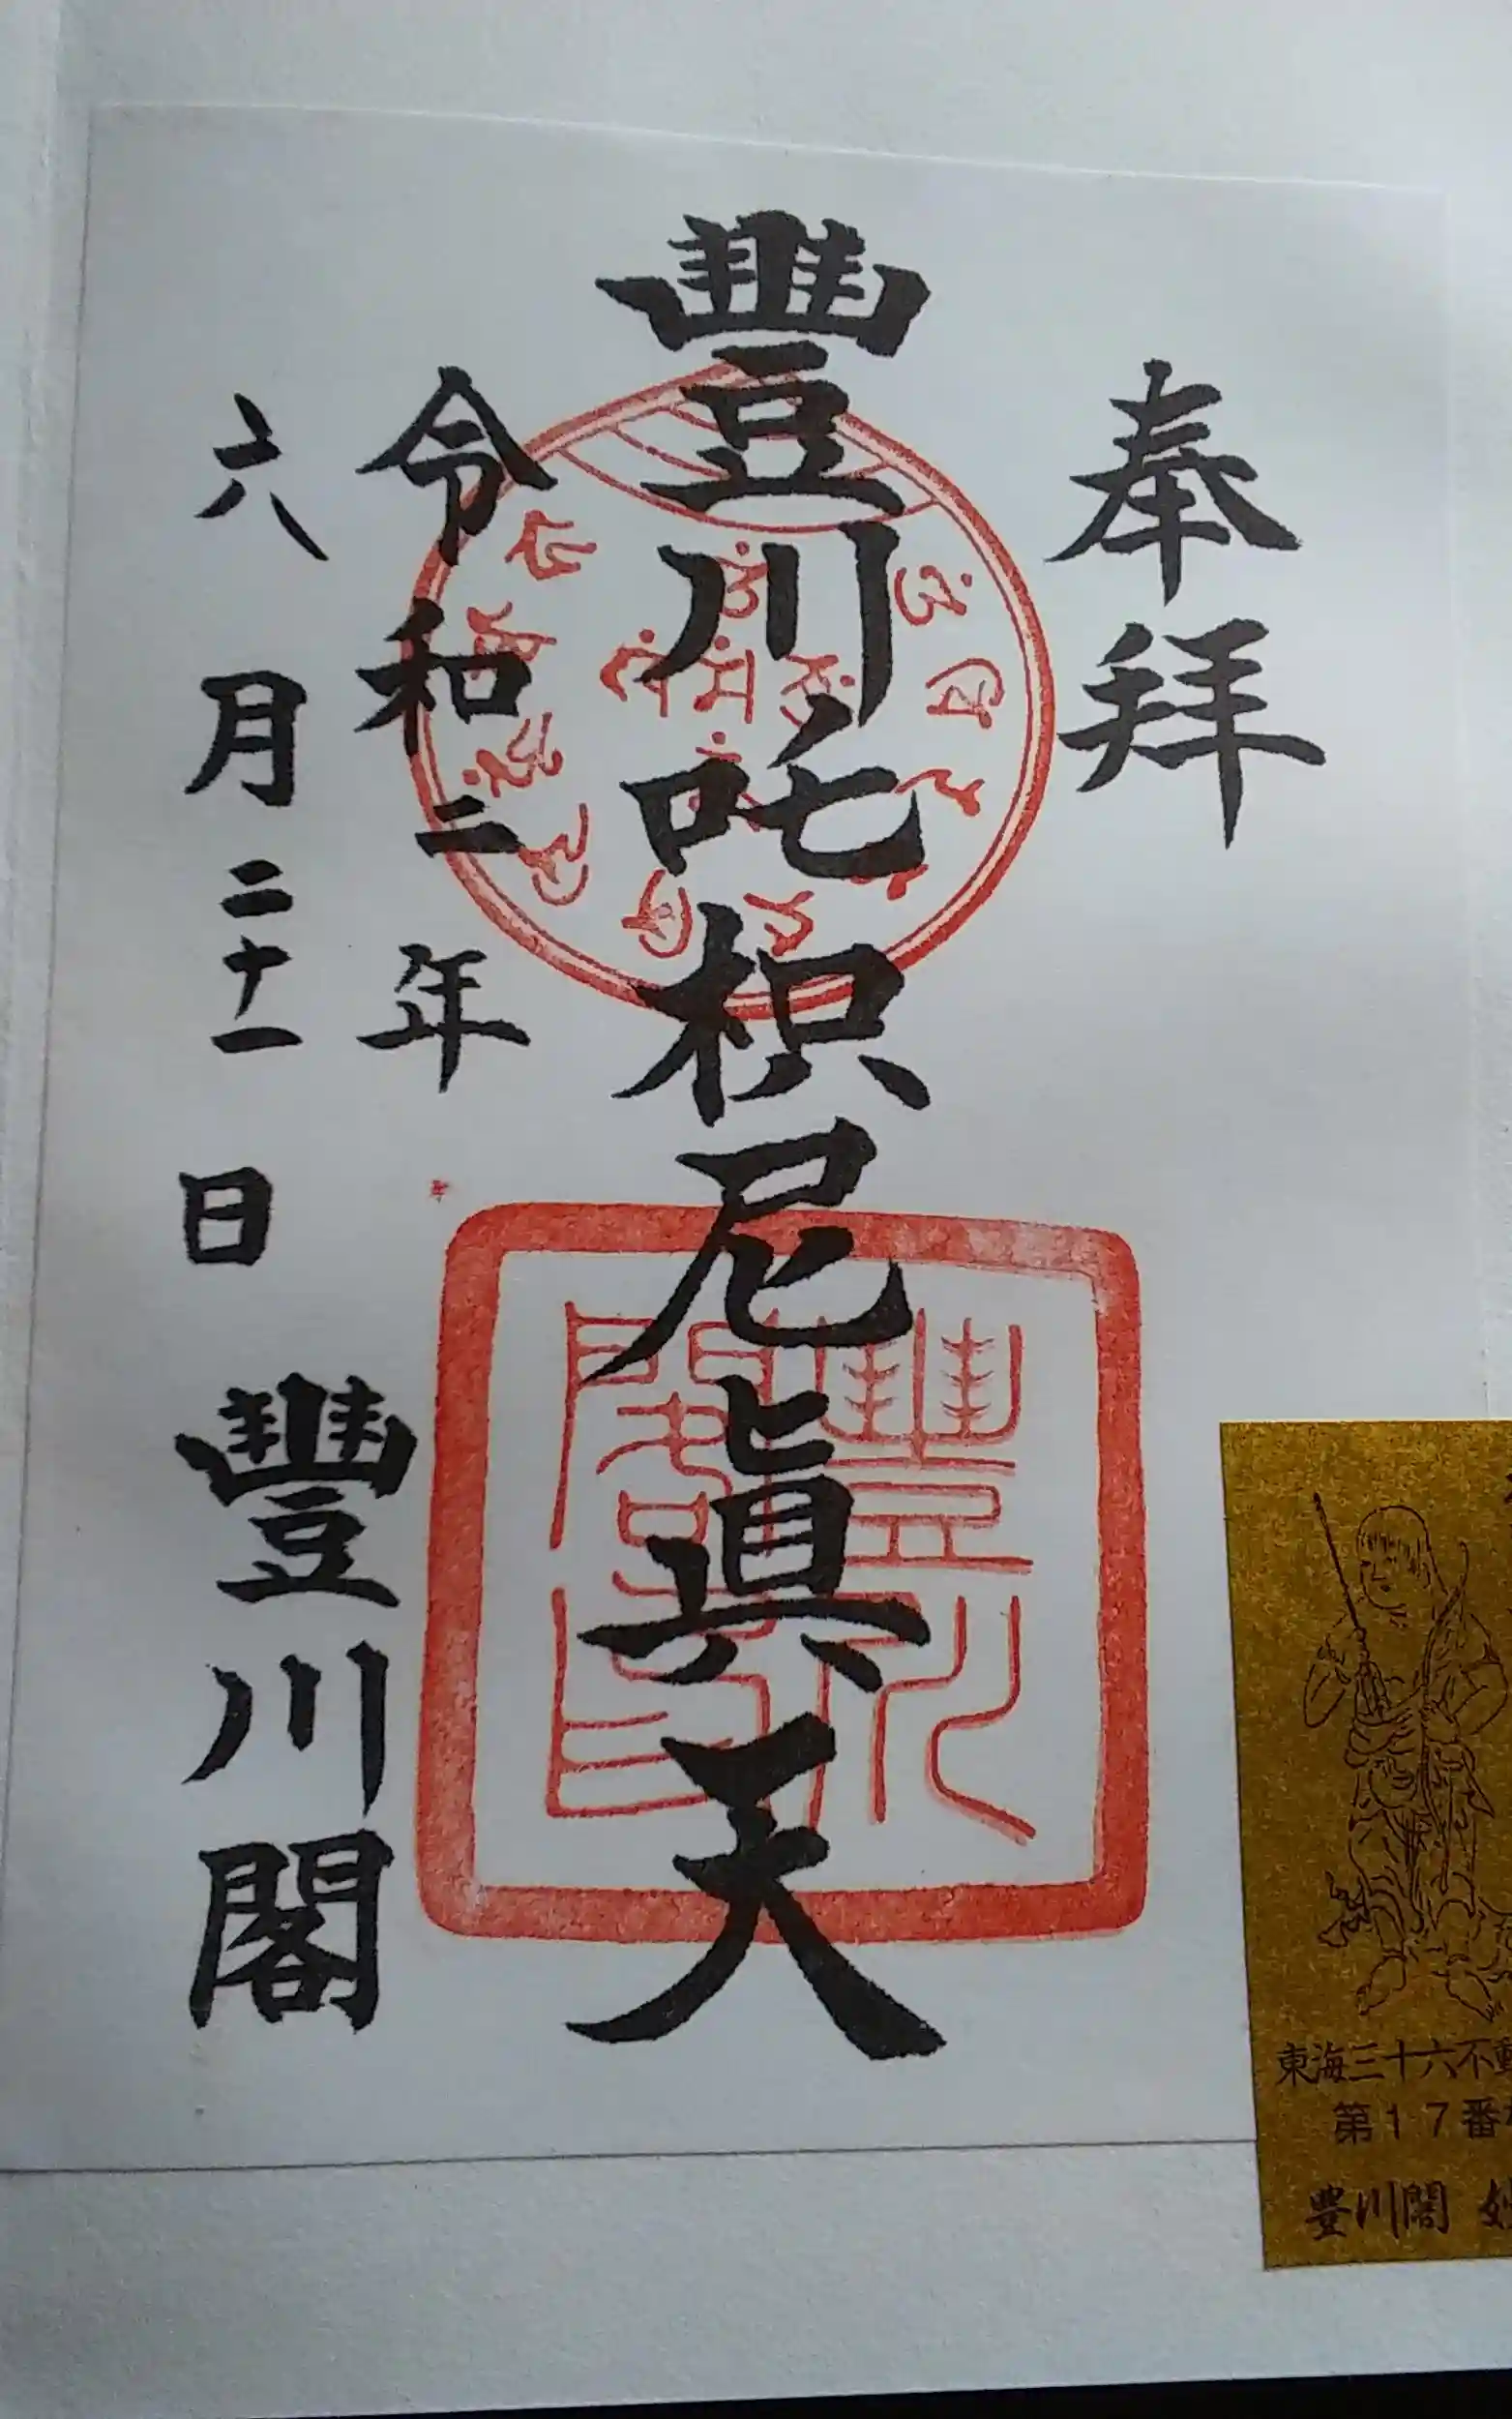 奉拝
豐川吒枳尼眞天
令和二年
六月二十一日
豐川閣
豐川閣印
東海三十六不動
第17番
豊川閣 妙